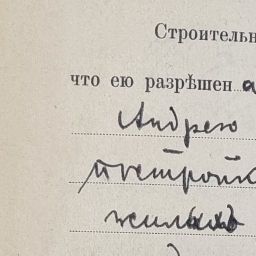 Строительн
что ею разрѣшена
Андрею
постройк
жилыхъ